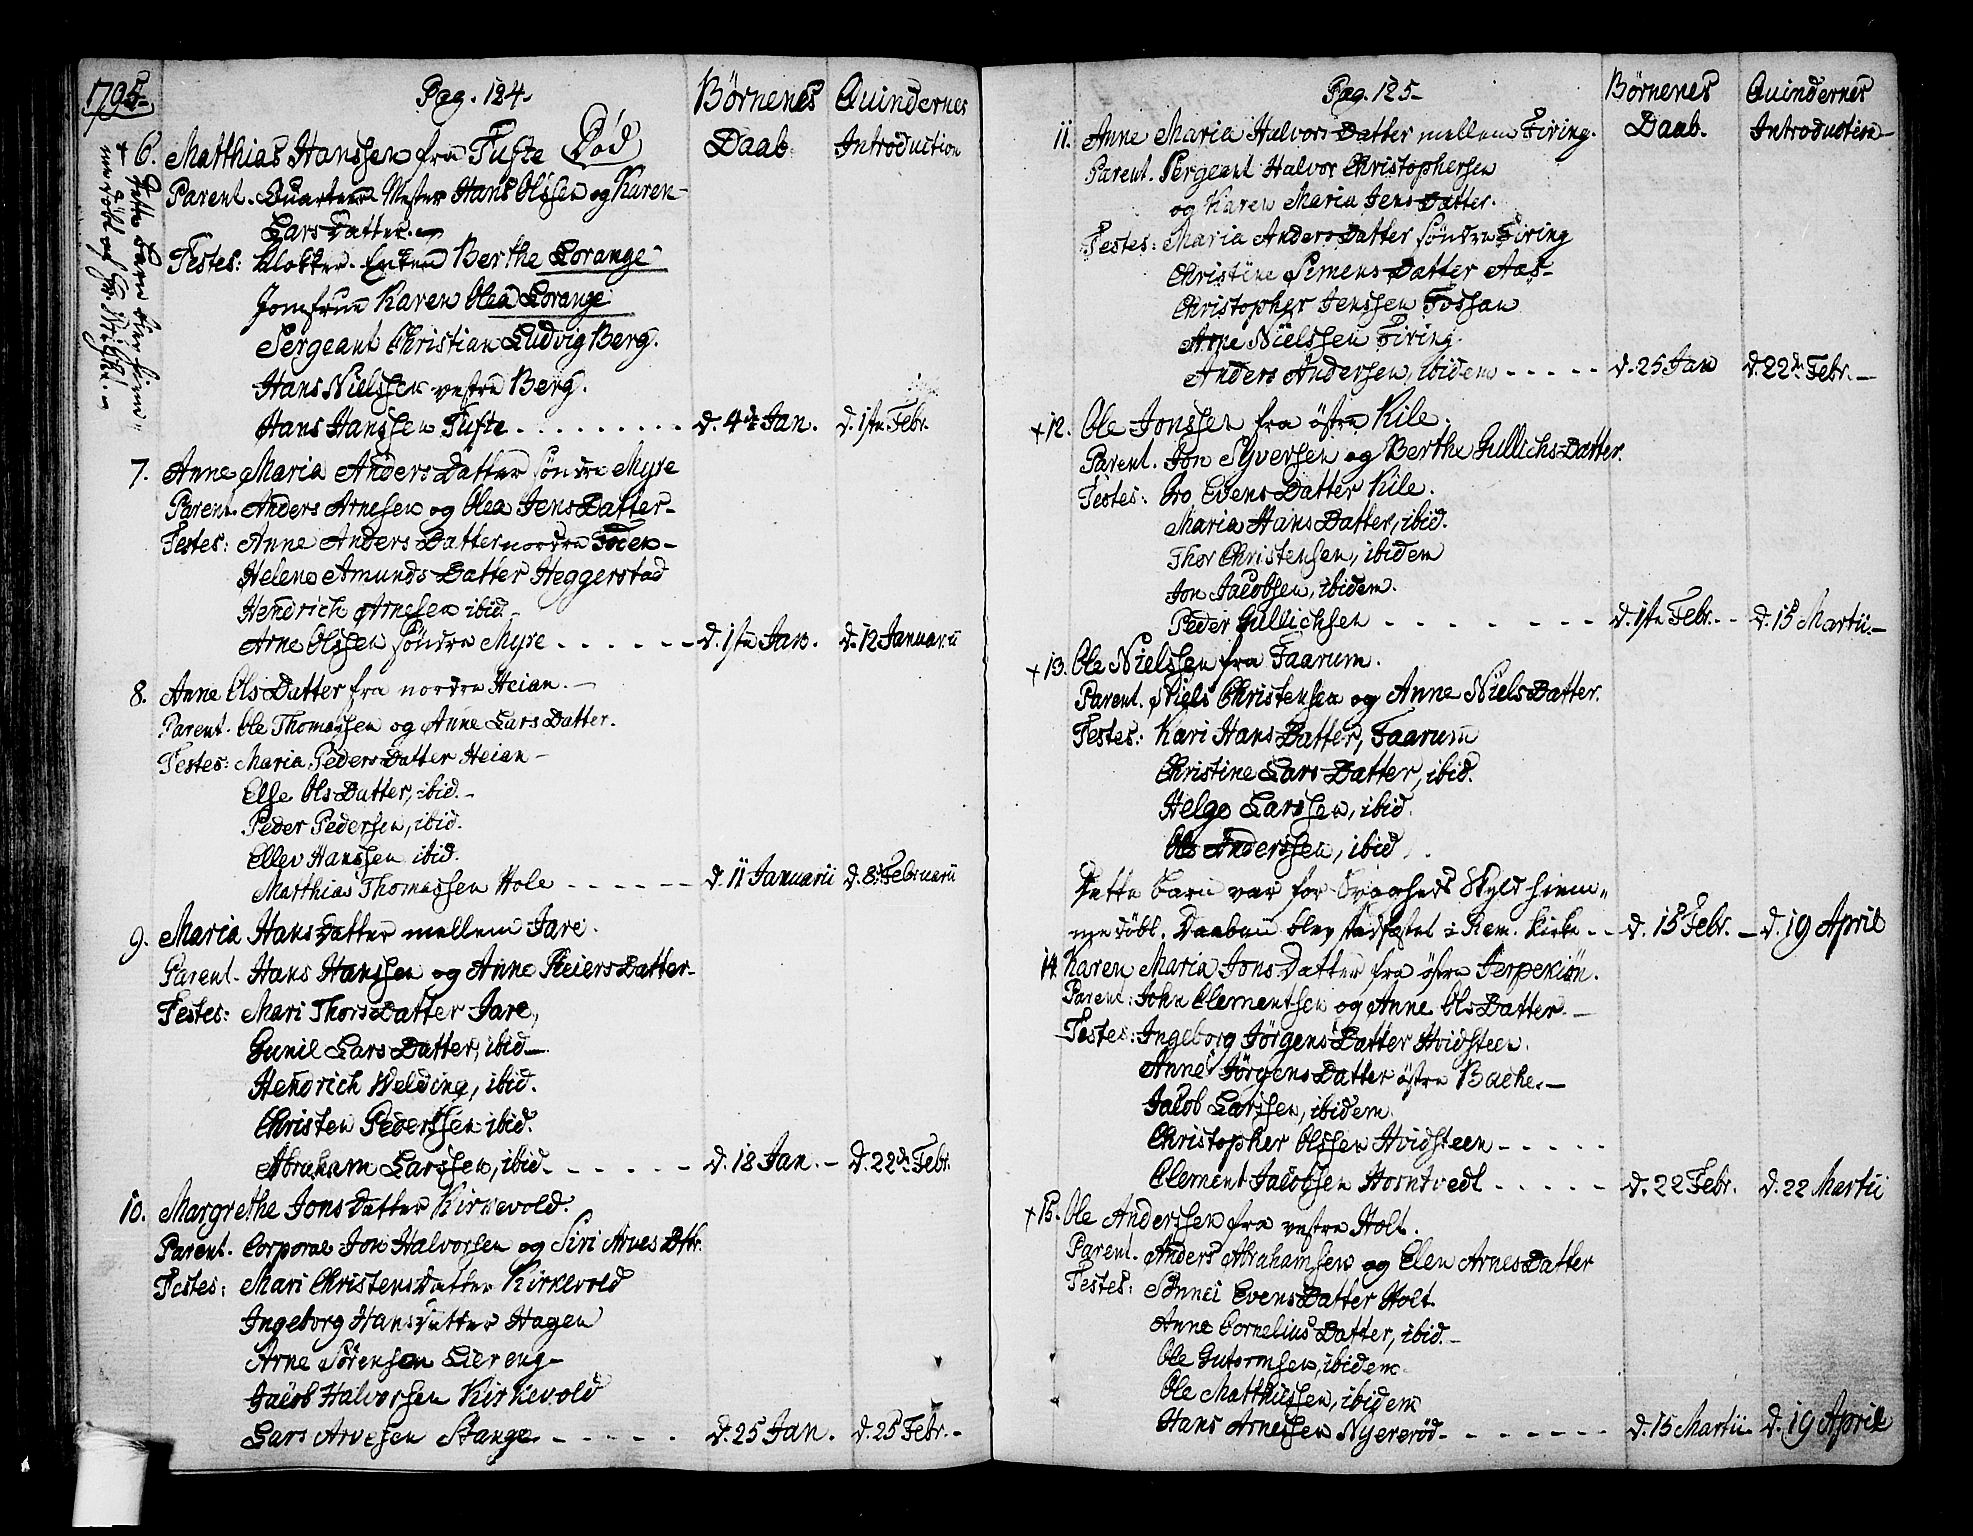 1795
Pag. 124.
Børnenes
Daab.
Quindernes
Introduction
+ 6. Matthias Hanssen fra Tufte Død
Dette Barn blev hiemmedøbt af
Parent. Quarteer Mester Hans Olssen og Karen
LarsDatter.
Testes: Klokker Enken Berthe Lorange
Jomfrue Karen Olea Lorange
Sergeant Christian Ludvig Berg.
Hans Nielssen vestre Berg.
Hans Hanssen Tufte
d. 4de Jan.
d. 1ste Febr.
7. Anne Maria AndersDatter söndre Myre
Parent. Anders Arnesen og Olea JensDatter
Testes: Anne AndersDatter nordre Foen
Helene AmundsDatter Heggerstad
Hendrich Arnesen ibid.
Arne Olssen söndre Myre
d. 1ste Jan.
d. 12 Januarii
8. Anne OlsDatter fra nordre Heian.
Parent. Ole Thomassen og Anne LarsDatter.
Testes: Maria PedersDatter Heian
Else OlsDatter, ibid.
Peder Pedersen, ibid.
Ellev Hanssen ibid.
Matthias Thomassen Hole
d. 11 Januarii
d. 8de Februarii
9. Maria HansDatter mellem Jare.
Parent. Hans Hanssen og Anne ReiersDatter
Testes: Mari ThorsDatter Jare,
Gunil LarsDatter, ibid.
Hendrich Welding, ibid.
Christen Pederssen ibid.
Abraham Larssen, ibid.
d. 18 Jan.
d. 22de Febr.
10. Margrethe JonsDatter Kirkevold.
Parent. Corporal Jon Halvorsen og Siri ArvesDttr.
Testes: Mari ChristensDatter Kirkevold
Ingeborg HansDatter Hagen
Arne Sörensen Liereng
Jacob Halvorsen Kirkevold
Lars Arvesen Stange
d. 25 Jan.
d. 25 Febr.
Pag. 125
Børnenes
Daab.
Quindernes
Introduction
11. Anne Maria HalvorsDatter mellem Firing.
Parent. Sergeant Halvor Christophersen
og Karen Maria JensDatter.
Testes: Maria AndersDatter söndre Firing
Christine SimensDatter Aas
Christopher Jenssen Fossan
Arne Nielssen Firing.
Anders Andersen, ibidem
d. 25 Jan
d. 22de Febr.
+ 12. Ole Jonssen fra östre Kile.
Parent. Jon Syversen og Berthe GullichsDatter.
Testes: Gro EvensDatter Kile.
Maria HansDatter, ibid.
Thor Christensen, ibidem
Jon Jacobsen, ibidem.
Peder Gullichsen
d. 1ste Febr.
d. 15 Martii
+ 13. Ole Nielssen fra Faarum.
Parent. Niels Christensen og Anne NielsDatter.
Testes: Kari HansDatter, Faarum
Christine LarsDatter, ibid.
Helge Larssen, ibid.
Ole Anderssen, ibid.
Dette Barn var for Svagheds Skyld hiem-
medöbt. Daaben blev stadfæstet i Ram. Kirke
d. 15 Febr.
d. 19 April
14. Karen Maria JonsDatter fra östre Jerpekiön.
Parent: John Clementsen og Anne OlsDatter.
Testes: Ingeborg JörgensDatter Hvidsteen.
Anne JörgensDatter östre Backe.
Jacob Larssen, ibidem.
Christopher Olssen Hvidsteen
Clement Jacobsen Horntvedt
d. 22 Febr.
d. 22 Martii
+ 15. Ole Anderssen fra vestre Holt.
Parent. Anders Abrahamsen og Elen ArnesDatter
Testes: Sönnei EvensDatter Holt.
Anne CorneliusDatter, ibid.
Ole Gutormsen, ibidem
Ole Matthiessen, ibidem
Hans Arnessen Nyeröd
d. 15 Martii
d. 19 April